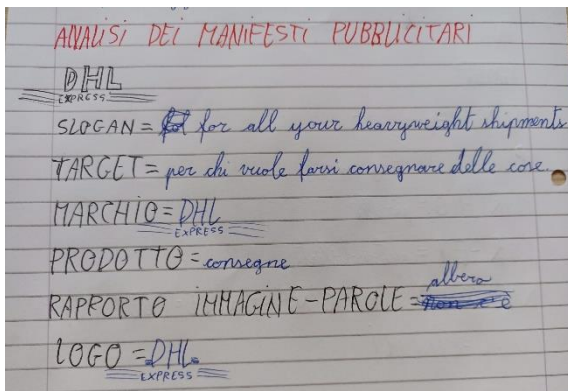 ANALISI DEI MANIFESTI PUBBLICITARI
DHL
EXPRESS
SLOGAN = for all your heavyweight shipments
TARGET = per chi vuole farsi consegnare delle cose.
MARCHIO = DHL
EXPRESS
PRODOTTO = consegne
albero
RAPPORTO IMMAGINE-PAROLE =
LOGO = DHL
EXPRESS